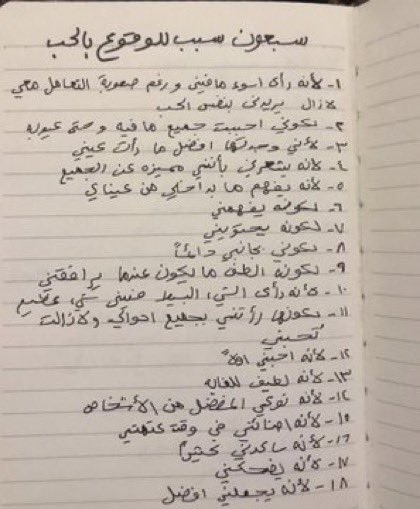 سبعون سبب للوقوع بالحب
١- لأنه رأى اسوء مافيني ورغم صعوبة التعامل معي
لازال يريدني بنفس الحب
٢- لكوني احببت جميع ما فيه وحتى عيوبه
٣- لأنني وجدتها افضل ما رأت عيني
٤- لأنه يشعرني بأنني مميزه عن الجميع
٥- لأنه يفهم ما بداخلي من عيناي
٦- لكونه يفهمني
٧- لكونه يحتويني
٨- لكوني بجانبي دائماً
٩- لكونه الطف ما يكون عندما يرافقني
١٠- لأنه رأى الشيء البسيط مني شيء عظيم
١١- لكونها رأتني بجميع احوالي ولازالت
تحبني
١٢- لأنه احبني اولاً
١٣- لأنه لطيف للغاية
١٤- لأنه نوعي المفضل من الأشخاص
١٥- لأنه في وقت عتمتي
١٦- لأنه ساعدني كثيراً
١٧- لأنه يضحكني
١٨- لأنه يجعلني افضل